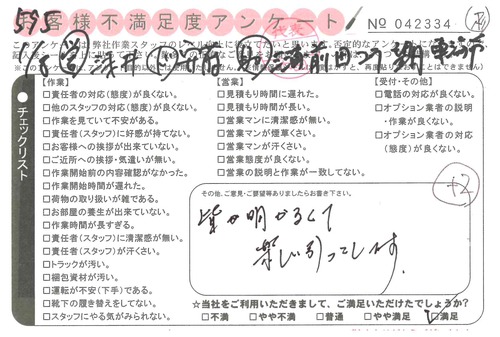 お客様不満足度アンケート
No 042334
595
+2
チェックリスト
【作業】
□責任者の対応(態度)が良くない。
□他のスタッフの対応(態度)が良くない。
□作業を見ていて不安がある。
□責任者(スタッフ)に好感が持てない。
□お客様への挨拶が出来ていない。
□ご近所への挨拶・気遣いが無い。
□作業開始前の内容確認がなかった。
□作業開始時間が遅れた。
□荷物の取り扱いが雑である。
□お部屋の養生が出来ていない。
□作業時間が長すぎる。
□責任者(スタッフ)に清潔感が無い。
□責任者(スタッフ)が汗くさい。
□トラックが汚い。
□梱包資材が汚い。
□運転が不安(下手)である。
□靴下の履き替えをしてない。
□スタッフにやる気がみられない。
【営業】
□見積もり時間に遅れた。
□見積もり時間が長い。
□営業マンに清潔感が無い。
□営業マンが煙草くさい。
□営業マンが汗くさい。
□営業態度が良くない。
□営業の説明と作業が一致してない。
【受付・その他】
□電話の対応が良くない。
□オプション業者の説明
・作業が良くない。
□オプション業者の対応
(態度)が良くない。
その他、ご意見・ご要望等ありましたらお書き下さい。
皆が明かるくて
楽しい引っこしです。
☆当社をご利用いただきまして、ご満足いただけたでしょうか?
□不満 □やや不満 □普通 □やや満足 □満足